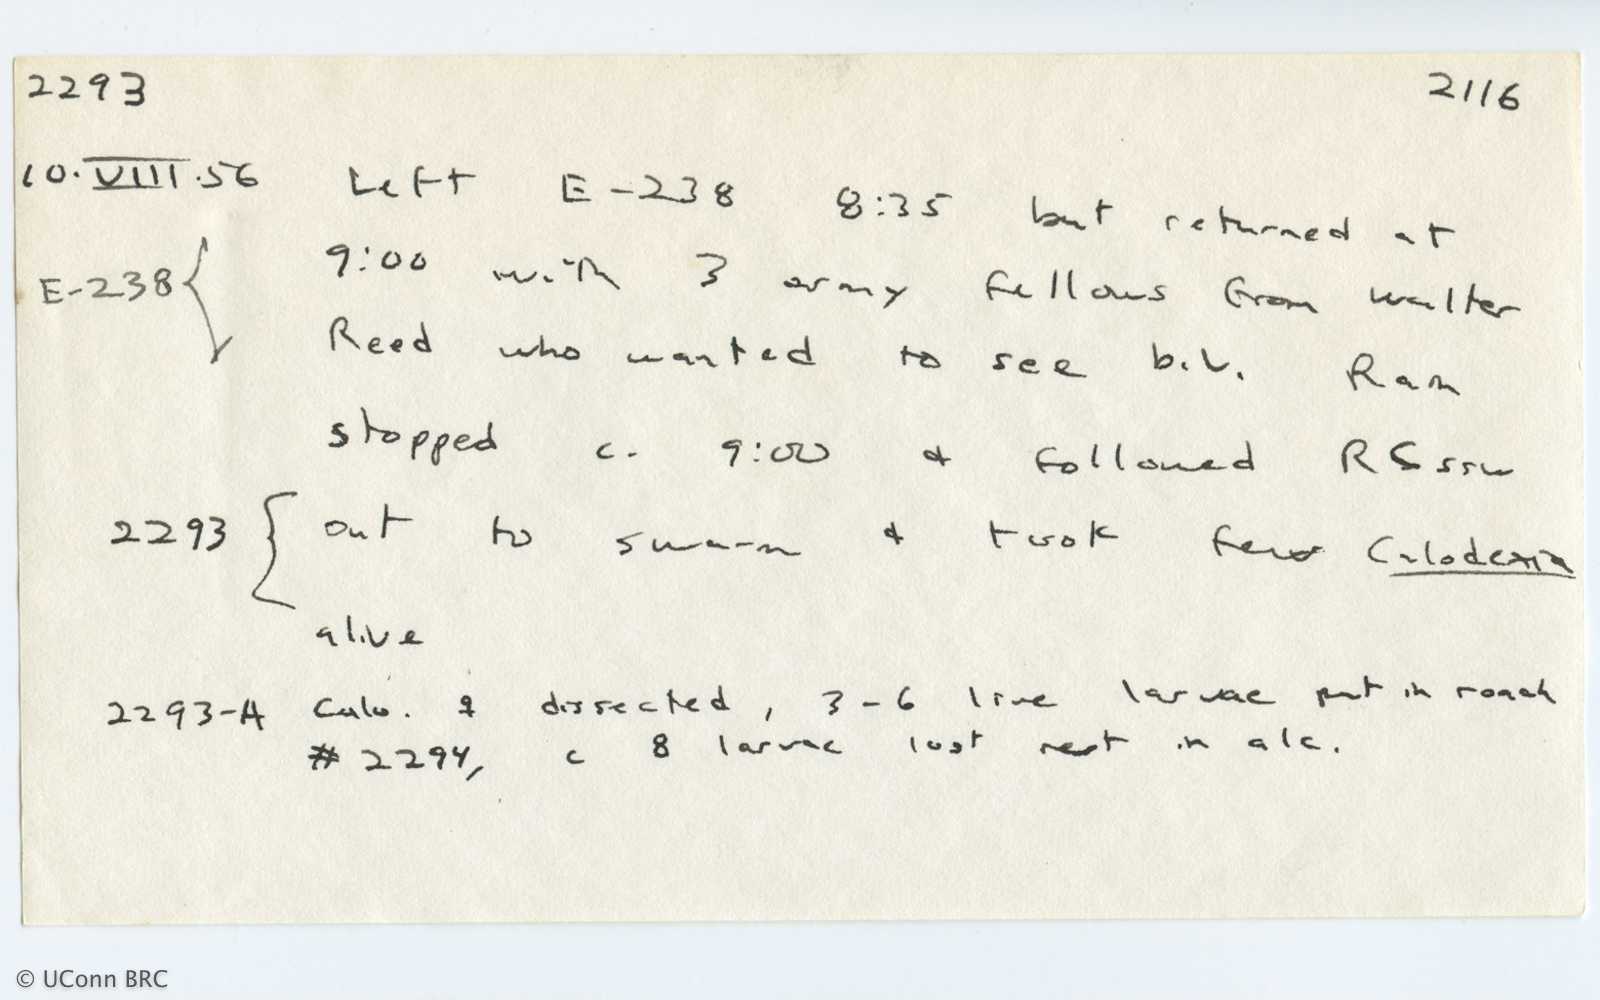 2293 2116
10.VIII.56 Left E-238 8:35 but returned at
E-238 { 9:00 with 3 army fellows from Walter
Reed who wanted to see b.v. Rain
stopped c. 9:00 & followed RC ssw
2293 { out to swarm & took few Calodexia
alive
2293-A Calo. ♀ dissected, 3-6 live larvae put in roach
# 2294, c 8 larvae lost rest in alc.
© UConn BRC